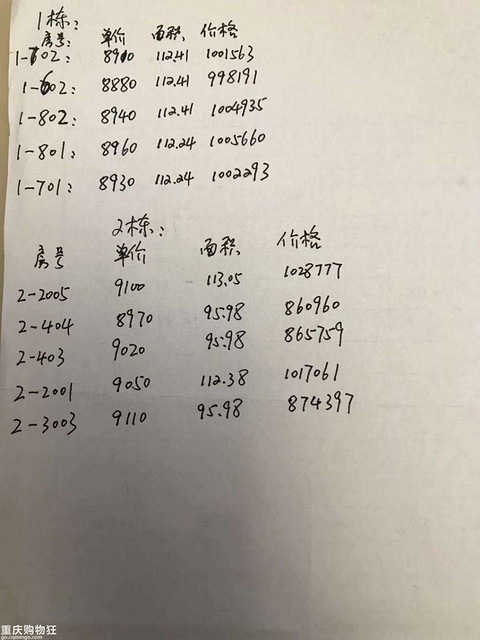 1栋:
房号: 单价 面积 价格
1-702: 8910 112.41 1001563
1-602: 8880 112.41 998191
1-802: 8940 112.41 1004935
1-801: 8960 112.24 1005660
1-701: 8930 112.24 1002293
2栋:
房号 单价 面积 价格
2-2005 9100 113.05 1028777
2-404 8970 95.98 860960
2-403 9020 95.98 865759
2-2001 9050 112.38 1017061
2-3003 9110 95.98 874397
重庆购物狂
go.cqmmgo.com